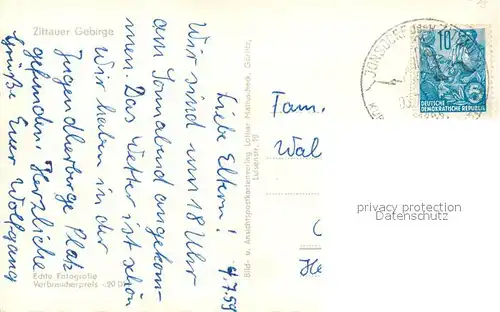 Zittauer Gebirge
4.7.59
Liebe Eltern!
Wir sind um 18 Uhr
am Sonnabend angekom-
men. Das Wetter ist schön
Wir haben in der
Jugendherberge Platz
gefunden. Herzliche
Grüße Euer Wolfgang
Echte Fotografie
Verbraucherpreis -20 D
Bild- u. Ansichtspostkartenverlag Lothar Görlitz,
Luisenstr. 19
Fam.
Wal
He
JONSDORF
10
DEUTSCHE
DEMOKRATISCHE REPUBLIK
privacy protection
Datenschutz